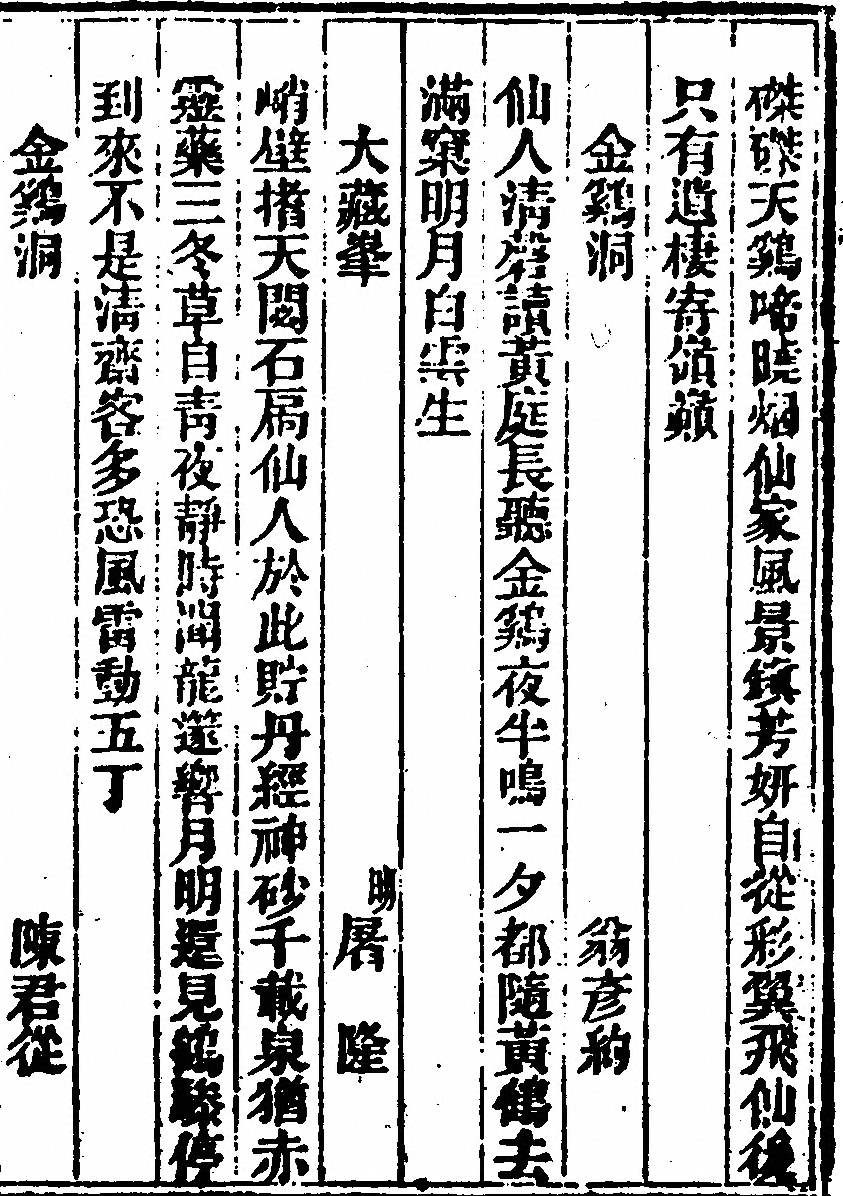 磔磔天鷄啼曉烟仙家風景鎮芳妍自從彩翼飛仙後
只有道棲寄嶺巔
金鷄洞 翁彥約
仙人淸磬讀黃庭長聽金鷄夜半鳴一夕都隨黃鶴去
滿窠明月白雲生
大藏峯 明屠隆
峭壁揩天閟石扃仙人於此貯丹經神砂千載泉猶赤
靈藥三冬草自靑夜靜時聞龍遞響月明還見鶴驂停
到來不是淸齋客多恐風雷動五丁
金鷄洞 陳君從